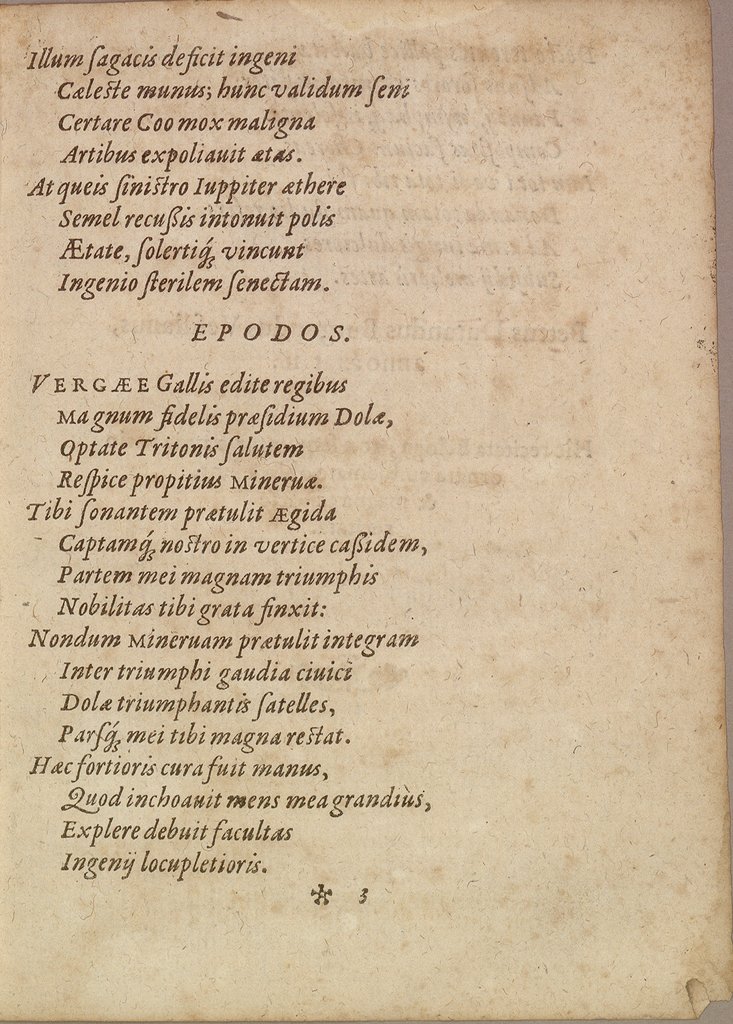 Illum ſagacis deficit ingeni
Cæleſte munus; hunc validum ſeni
Certare Coo mox maligna
Artibus expoliauit ætas.
At queis ſiniſtro Iuppiter æthere
Semel recußis intonuit polis
Ætate, ſolertiq́; vincunt
Ingenio ſterilem ſenectam.
EPODOS.
VERGÆE Gallis edite regibus
Magnum fidelis præſidium Dolæ,
Optate Tritonis ſalutem
Reſpice propitius Mineruæ.
Tibi ſonantem prætulit Ægida
Captamq́; noſtro in vertice caßidem,
Partem mei magnam triumphis
Nobilitas tibi grata finxit:
Nondum Mineruam prætulit integram
Inter triumphi gaudia ciuici
Dolæ triumphantis ſatelles,
Parſq́; mei tibi magna reſtat.
Hæc fortioris cura fuit manus,
Quod inchoauit mens mea grandiùs,
Explere debuit facultas
Ingenij locupletioris.
✠ 3